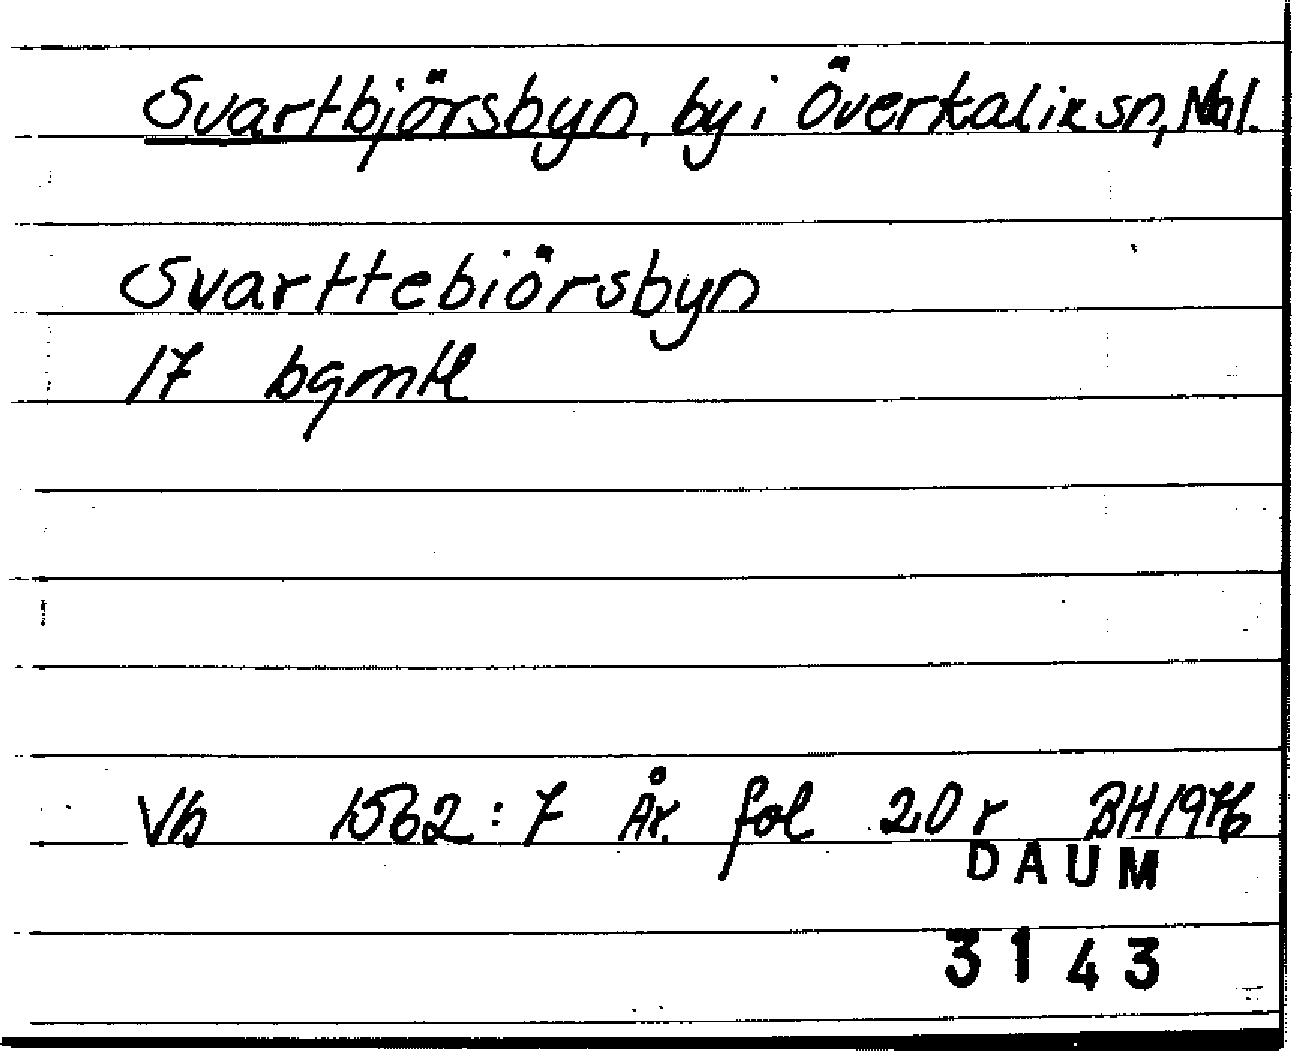 Svartbjörsbyn, by i Överkalix sn, Nbl.
Svarttebiörsbyn
17 bgmtl
Vb 1562:7 År. fol 20 r BH 1976
DAUM
3143